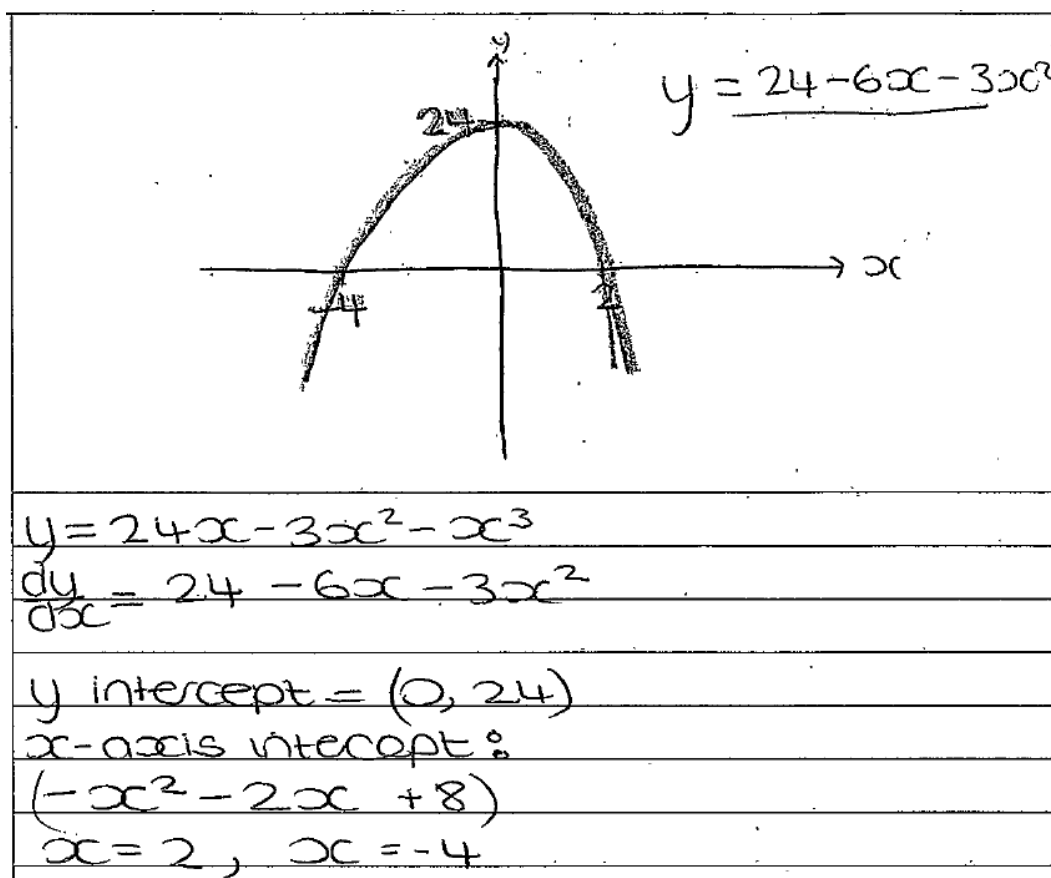 y
y = 24-6x-3x²
24
x
-4
y = 24x - 3x² - x³
dy/dx = 24 - 6x - 3x²
y intercept = (0, 24)
x-axis intecept:
(-x² - 2x + 8)
x = 2, x = -4